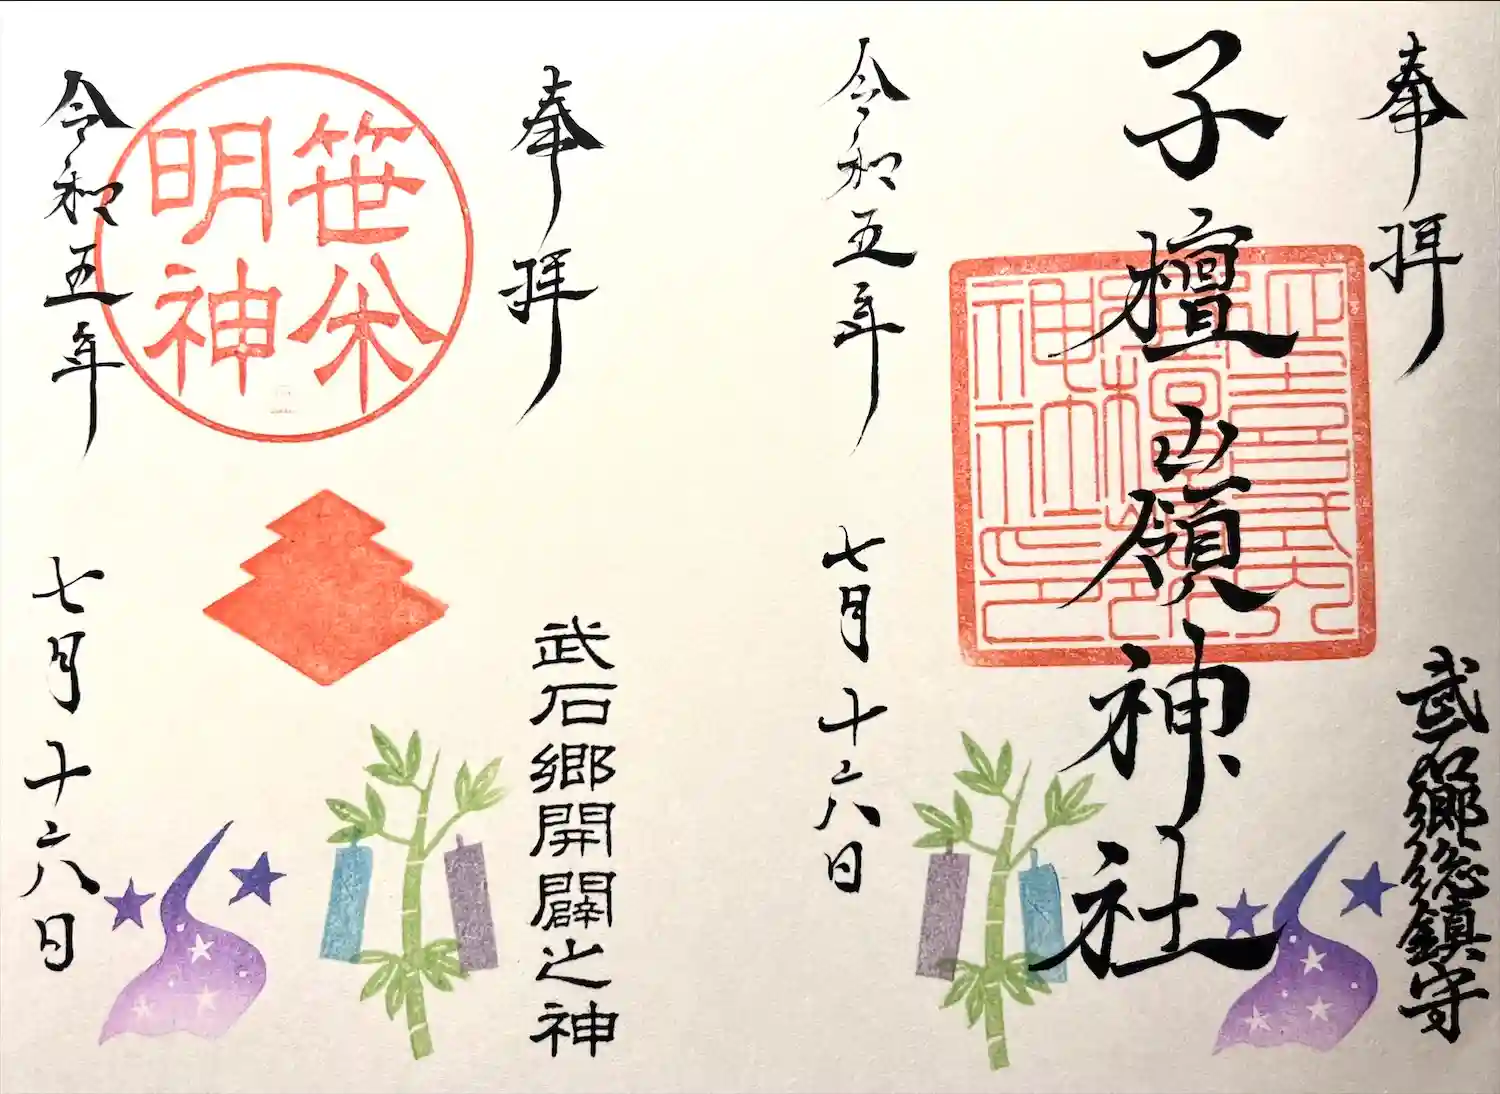 奉拝
武石郷総鎮守
子檀嶺神社
令和五年
七月十六日
奉拝
武石郷開闢之神
笹
明神
令和五年
七月十六日